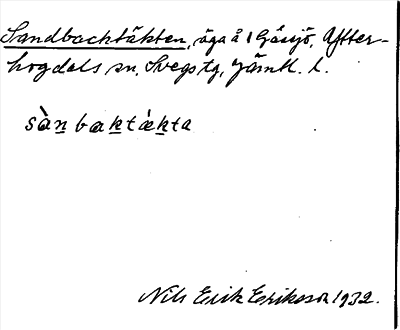 Sandbacktäkten, äga å i Gåsjö, Ytter-
hogdals sn, Svegs tg, Jämtl. l.
sànbaktǽkta
Nils Erik Eriksson 1932.